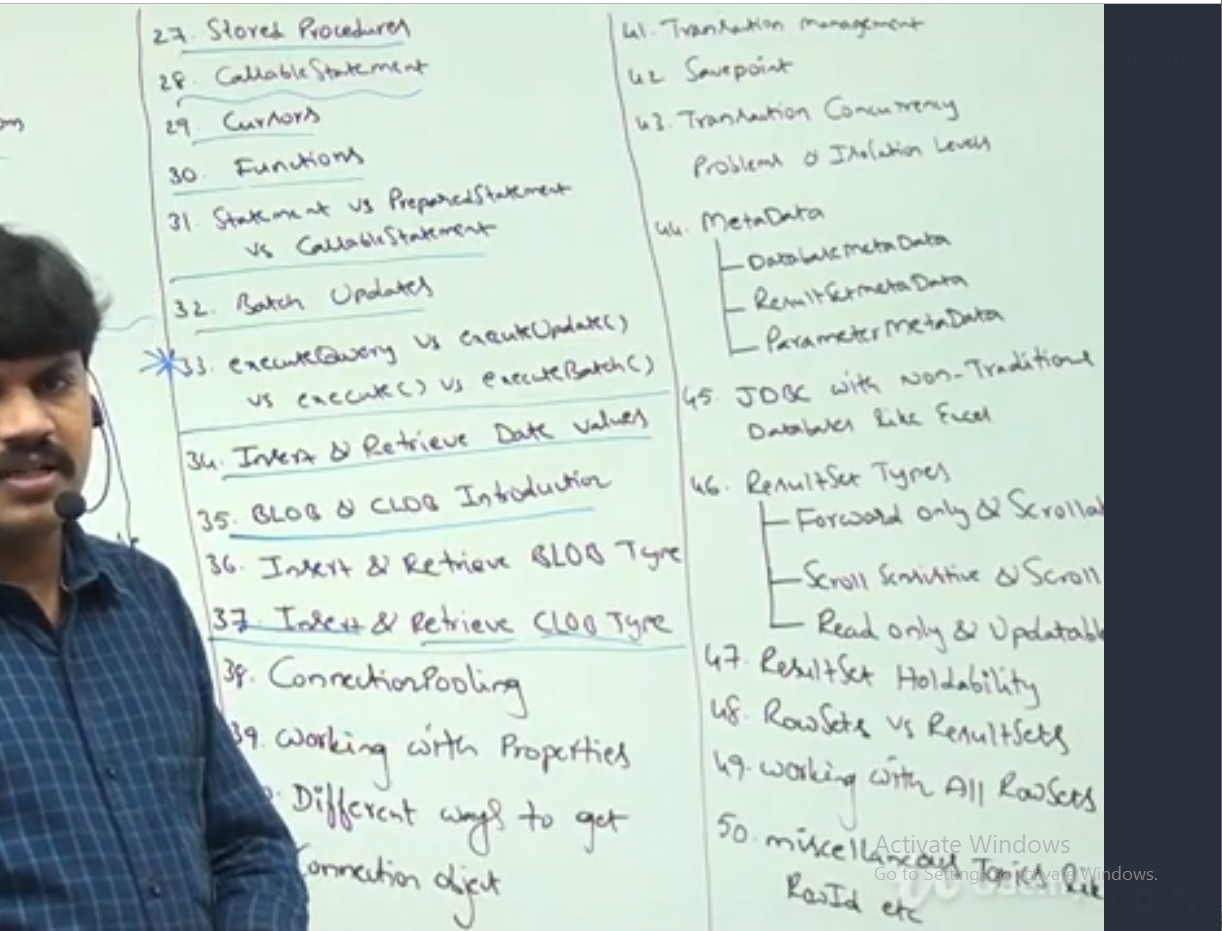 27. Stored Procedures
28. CallableStatement
29. Cursors
30. Functions
31. Statement vs PreparedStatement
vs CallableStatement
32. Batch Updates
33. executeQuery vs executeUpdate()
vs execute() vs executeBatch()
34. Insert & Retrieve Date values
35. BLOB & CLOB Introduction
36. Insert & Retrieve BLOB Type
37. Insert & Retrieve CLOB Type
38. ConnectionPooling
39. Working with Properties
Different ways to get
Connection object
41. Transaction management
42 Savepoint
43. Transaction Concurrency
Problems & Isolation Levels
44. MetaData
DatabasemetaData
ResultSetmetaData
ParameterMetaData
45. JDBC with Non-Traditional
Databases like Excel
46. ResultSet Types
Forward only & Scrollab
Scroll Sensistive & Scroll
Read only & Updatabl
47. ResultSet Holdability
48. RowSets vs ResultSets
49. Working with All RowSets
50. miscellaneous Topics like
RowId etc
Activate Windows
Go to Settings to activate Windows.